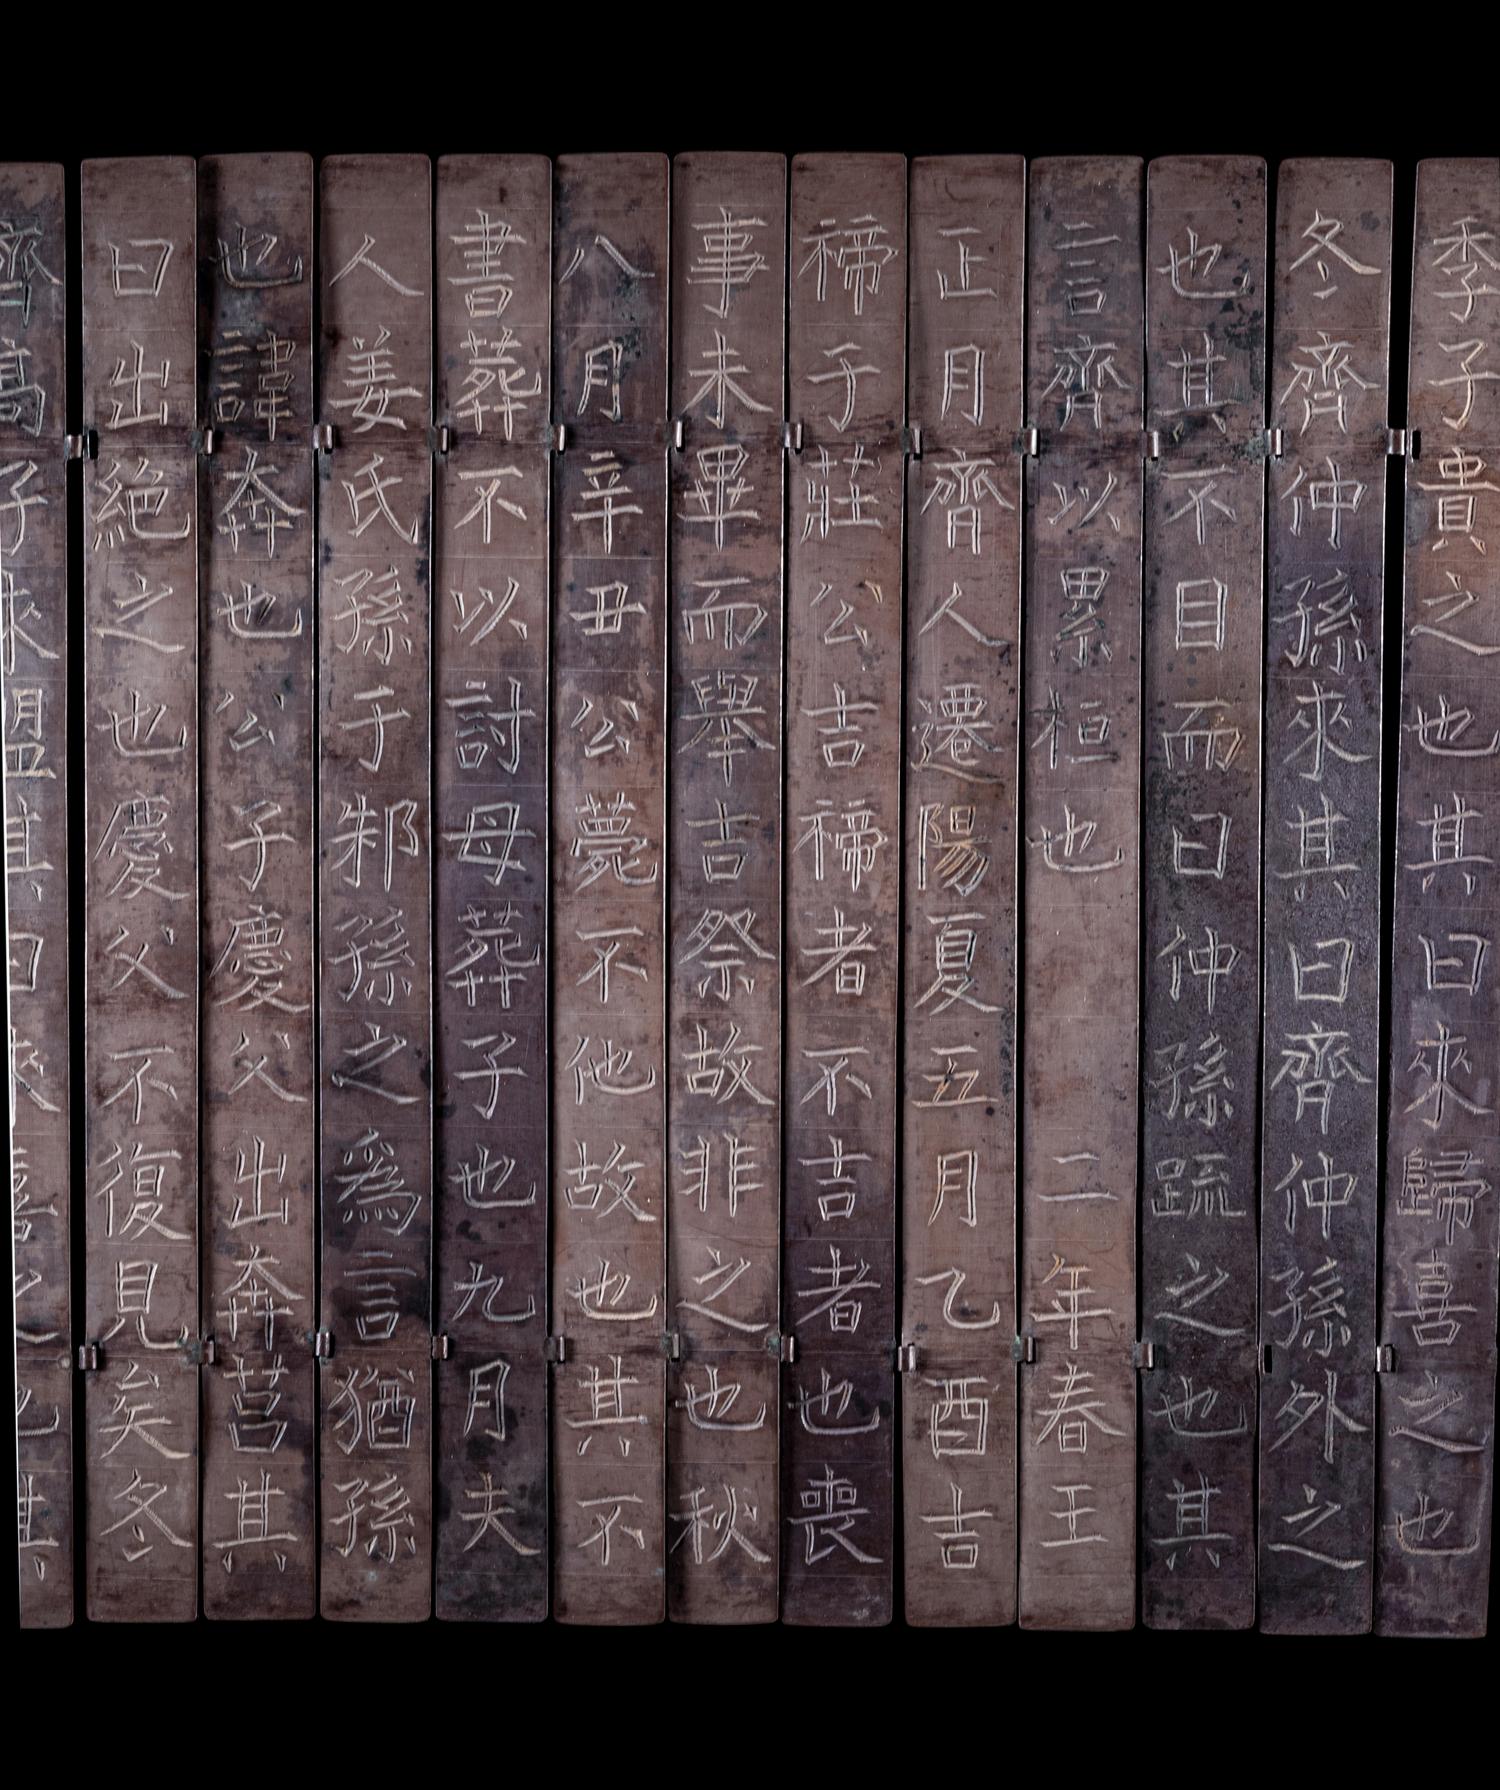 季子貴之也其曰來歸喜之也
冬齊仲孫來其曰齊仲孫外之
也其不目而曰仲孫疏之也其
言齊以累桓也 二年春王
正月齊人遷陽夏五月乙酉吉
禘于莊公吉禘者不吉者也喪
事未畢而舉吉祭故非之也秋
八月辛丑公薨不他故也其不
書葬不以討母葬子也九月夫
人姜氏孫于邾孫之為言猶孫
也諱奔也公子慶父出奔莒其
曰出絕之也慶父不復見矣冬
齊高子來盟其曰來喜之也其